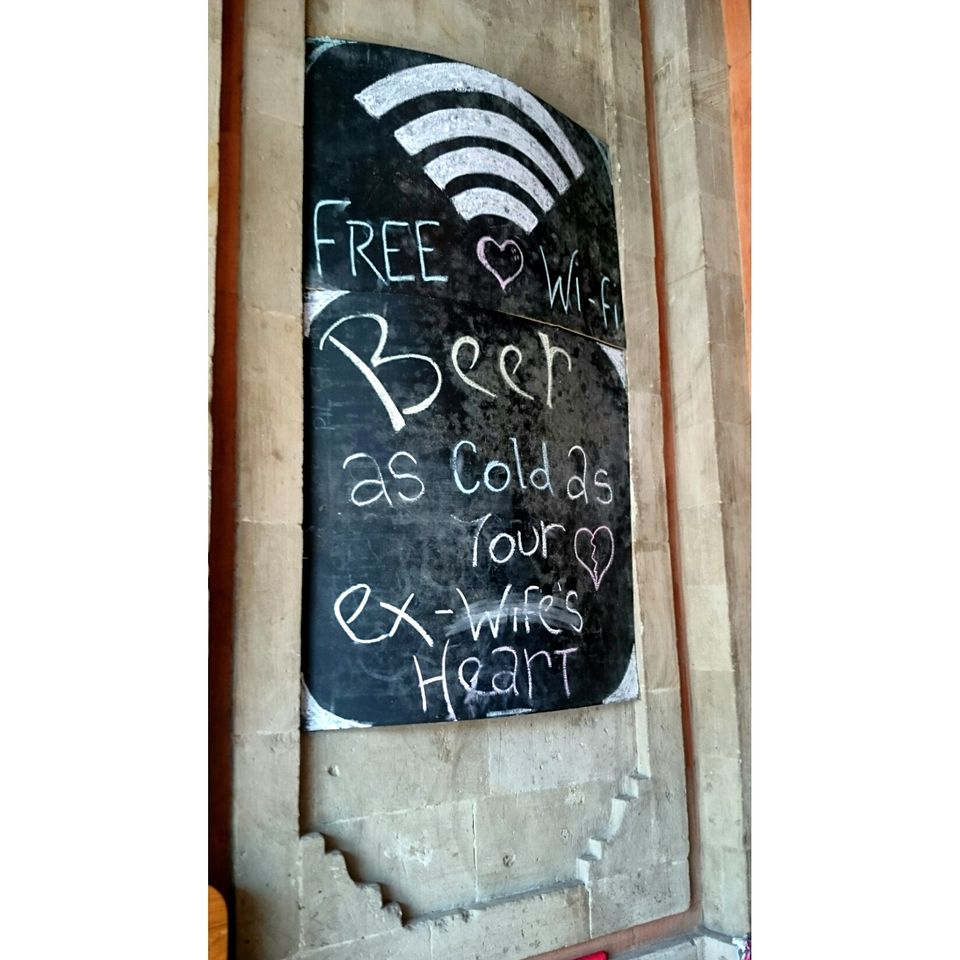 FREE Wi-fi
Beer
as Cold as
Your
ex-Wife's
HearT